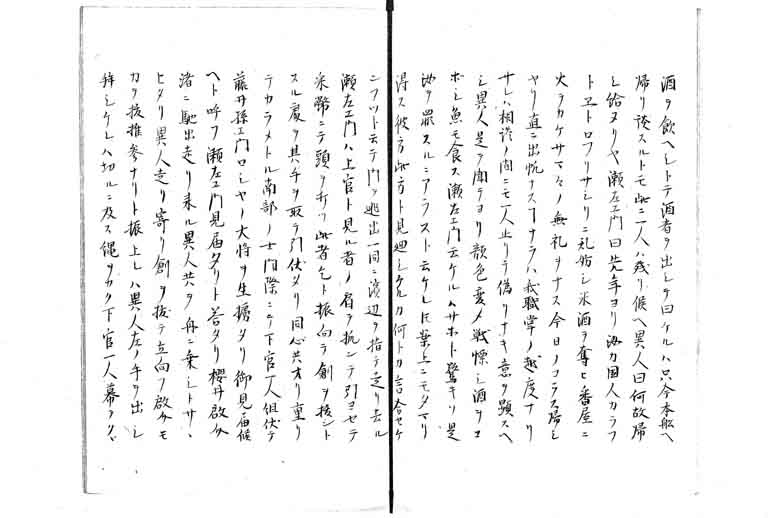 酒ヲ飲ヘシトテ酒肴ヲ出シケ曰ケルハ只今本舩ヘ
帰リ談スルトモ此二人ハ残リ候ヘ異人曰何故帰
シ給ヌリヤ瀬左エ門曰先年ヨリ汝カ国人カラフ
トヱトロフリサシリニ乱妨シ米酒ヲ奪ヒ番屋ニ
火ヲカケサマ々ノ無礼ヲナス今日ノコラス帰シ
ヤリ直ニ出帆ナスコナラハ我職掌ノ越度ナリ
ナレハ相談ノ間ニモ一人止リテ偽リナキ意ヲ顕スヘ
シ異人是ヲ聞テヨリ顔色変メ戦慄シ酒ヲモ
ホシ魚モ食ス瀬左エ門云ケルハサホト驚キソ是
汝ヲ罪スルニアラスト云ケレ𪜈業上ニモタマリ
得ス彼方此方ト見廻シケルカ何トカ言合セケ
ニフツト云テ門ヲ逃出一同ニ濱辺ヲ指テ走リ去ル
瀬左エ門ハ上官ト見ル者ノ肩ヲ抗ンテ引ヨセテ
采幣ニテ頭ヲ打ツ此者乍ト振向テ劍ヲ援シト
スル處ヲ其手ヲ取テ引伏タリ同心共オリ重リ
テカラメトル南部ノ士門際ニテ下官一人組伏テ
藤井孫エ門ロシヤノ大将ヲ生擒タリ御見届候
ヘト呼フ瀬左エ門見届タリト答タリ櫻井啓介
渚ニ馳出走リ来ル異人共ヲ舟ニ乗シトサヽ
ヒタリ異人走リ寄リ劍ヲ抜テ立向フ啓介モ
カヲ抜推参ナリト振上レハ異人左ノ手ヲ出シ
拝シケレハ切ルニ及ス縄ヲカク下官一人幕ヲクヾ